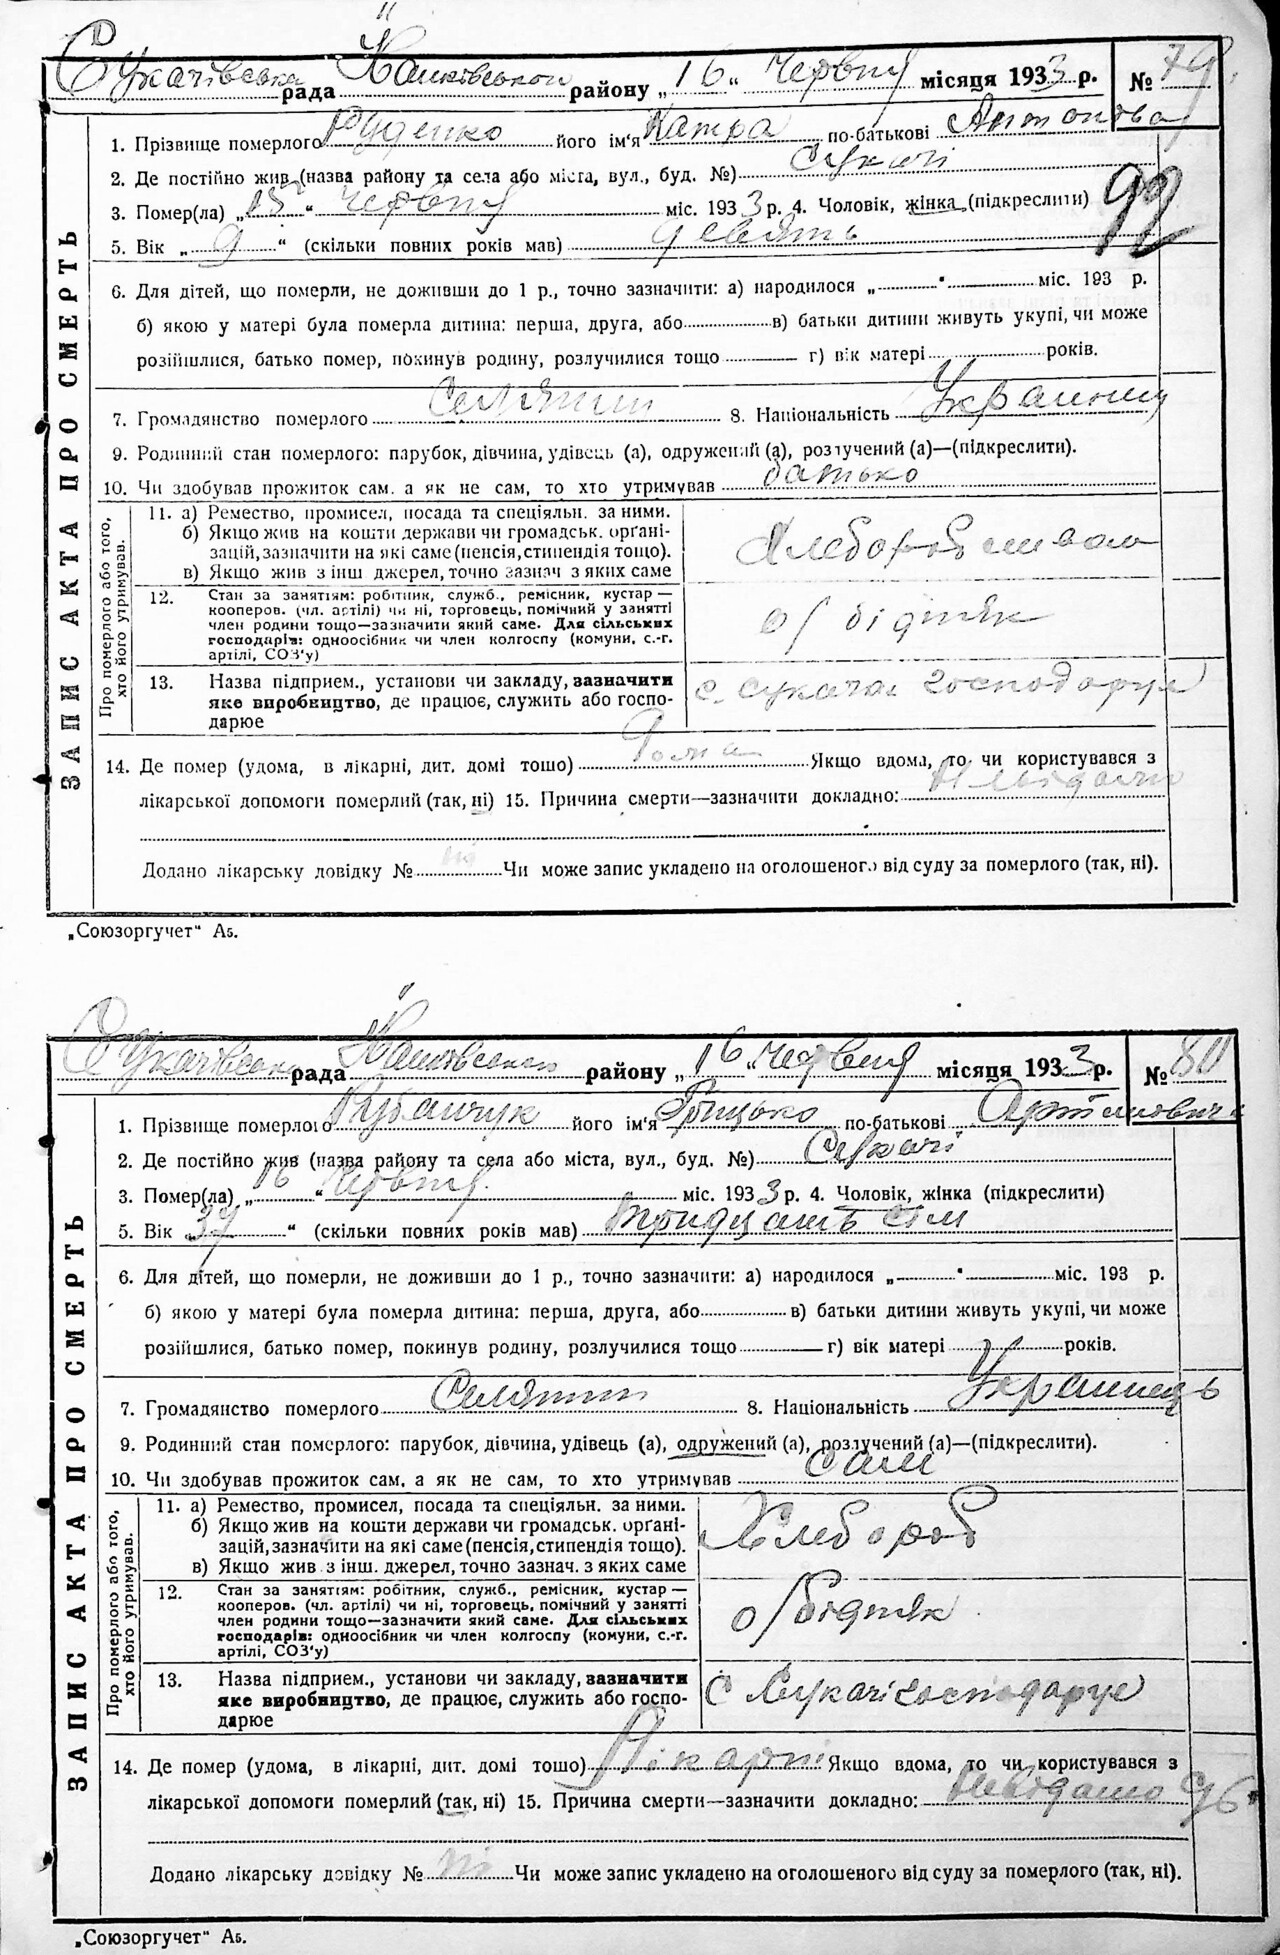 Сукачівська рада Іванківського району „16“ Червня місяця 1933 р. № 79
1. Прізвище померлого Руденко його ім'я Катра по-батькові Антонова
2. Де постійно жив (назва району та села або міста, вул., буд. №) Сукачі
3. Помер(ла) „15“ червня міс. 1933 р. 4. Чоловік, жінка (підкреслити)
92
5. Вік „9“ (скільки повних років мав) девять
6. Для дітей, що померли, не доживши до 1 р., точно зазначити: а) народилося „ “ міс. 193 р.
б) якою у матері була померла дитина: перша, друга, або в) батьки дитини живуть укупі, чи може
розійшлися, батько помер, покинув родину, розлучилися тощо г) вік матері років.
7. Громадянство померлого Селянин 8. Національність
9. Родинний стан померлого: парубок, дівчина, удівець (а), одружений (а), розлучений (а)—(підкреслити).
10. Чи здобував прожиток сам, а як не сам, то хто утримував батько
ЗАПИС АКТА ПРО СМЕРТЬ
Про померлого або того,
хто його утримував.
11. а) Ремество, промисел, посада та спеціяльн. за ними.
б) Якщо жив на кошти держави чи громадськ. органі-
зацій, зазначити на які саме (пенсія, стипендія тощо).
в) Якщо жив з інш джерел, точно зазнач з яких саме
12. Стан за занятіям: робітник, служб., ремісник, кустар —
кооперов. (чл. артілі) чи ні, торговець, помічний у занятті
член родини тощо—зазначити який саме. Для сільських
господарів: одноосібник чи член колгоспу (комуни, с.-г.
артілі, СОЗ'у)
о/бідняк
13. Назва підприєм., установи чи закладу, зазначити
яке виробництво, де працює, служить або госпо-
дарює
с. Сукачах господарує
14. Де помер (удома, в лікарні, дит. домі тошо) Дома Якщо вдома, то чи користувався з
лікарської допомоги померлий (так, ні) 15. Причина смерти—зазначити докладно: Невідомо
Додано лікарську довідку № ні Чи може запис укладено на оголошеного від суду за померлого (так, ні).
„Союзоргучет“ А5.
Сукачівська рада Іванківського району „16“ Червня місяця 1933 р. № 80
1. Прізвище померлого його ім'я Грицько по-батькові
2. Де постійно жив (назва району та села або міста, вул., буд. №) Сукачі
3. Помер(ла) „16“ червня міс. 1933 р. 4. Чоловік, жінка (підкреслити)
5. Вік 37“ (скільки повних років мав) тридцать сім
6. Для дітей, що померли, не доживши до 1 р., точно зазначити: а) народилося „ “ міс. 193 р.
б) якою у матері була померла дитина: перша, друга, або в) батьки дитини живуть укупі, чи може
розійшлися, батько помер, покинув родину, розлучилися тощо г) вік матері років.
7. Громадянство померлого Селянин 8. Національність Украинець
9. Родинний стан померлого: парубок, дівчина, удівець (а), одружений (а), розлучений (а)—(підкреслити).
10. Чи здобував прожиток сам, а як не сам, то хто утримував сам
ЗАПИС АКТА ПРО СМЕРТЬ
Про померлого або того,
хто його утримував.
11. а) Ремество, промисел, посада та спеціяльн. за ними.
б) Якщо жив на кошти держави чи громадськ. органі-
зацій, зазначити на які саме (пенсія, стипендія тощо).
в) Якщо жив з інш. джерел, точно зазнач. з яких саме
Хлебороб
12. Стан за занятіям: робітник, служб., ремісник, кустар —
кооперов. (чл. артілі) чи ні, торговець, помічний у занятті
член родини тощо—зазначити який саме. Для сільських
господарів: одноосібник чи член колгоспу (комуни, с.-г.
артілі, СОЗ'у)
о/бідняк
13. Назва підприєм., установи чи закладу, зазначити
яке виробництво, де працює, служить або госпо-
дарює
с Сукачі господарує
14. Де помер (удома, в лікарні, дит. домі тошо) Лікарні Якщо вдома, то чи користувався з
лікарської допомоги померлий (так, ні) 15. Причина смерти—зазначити докладно: Невідомо 96
Додано лікарську довідку № ні Чи може запис укладено на оголошеного від суду за померлого (так, ні).
„Союзоргучет“ А5.